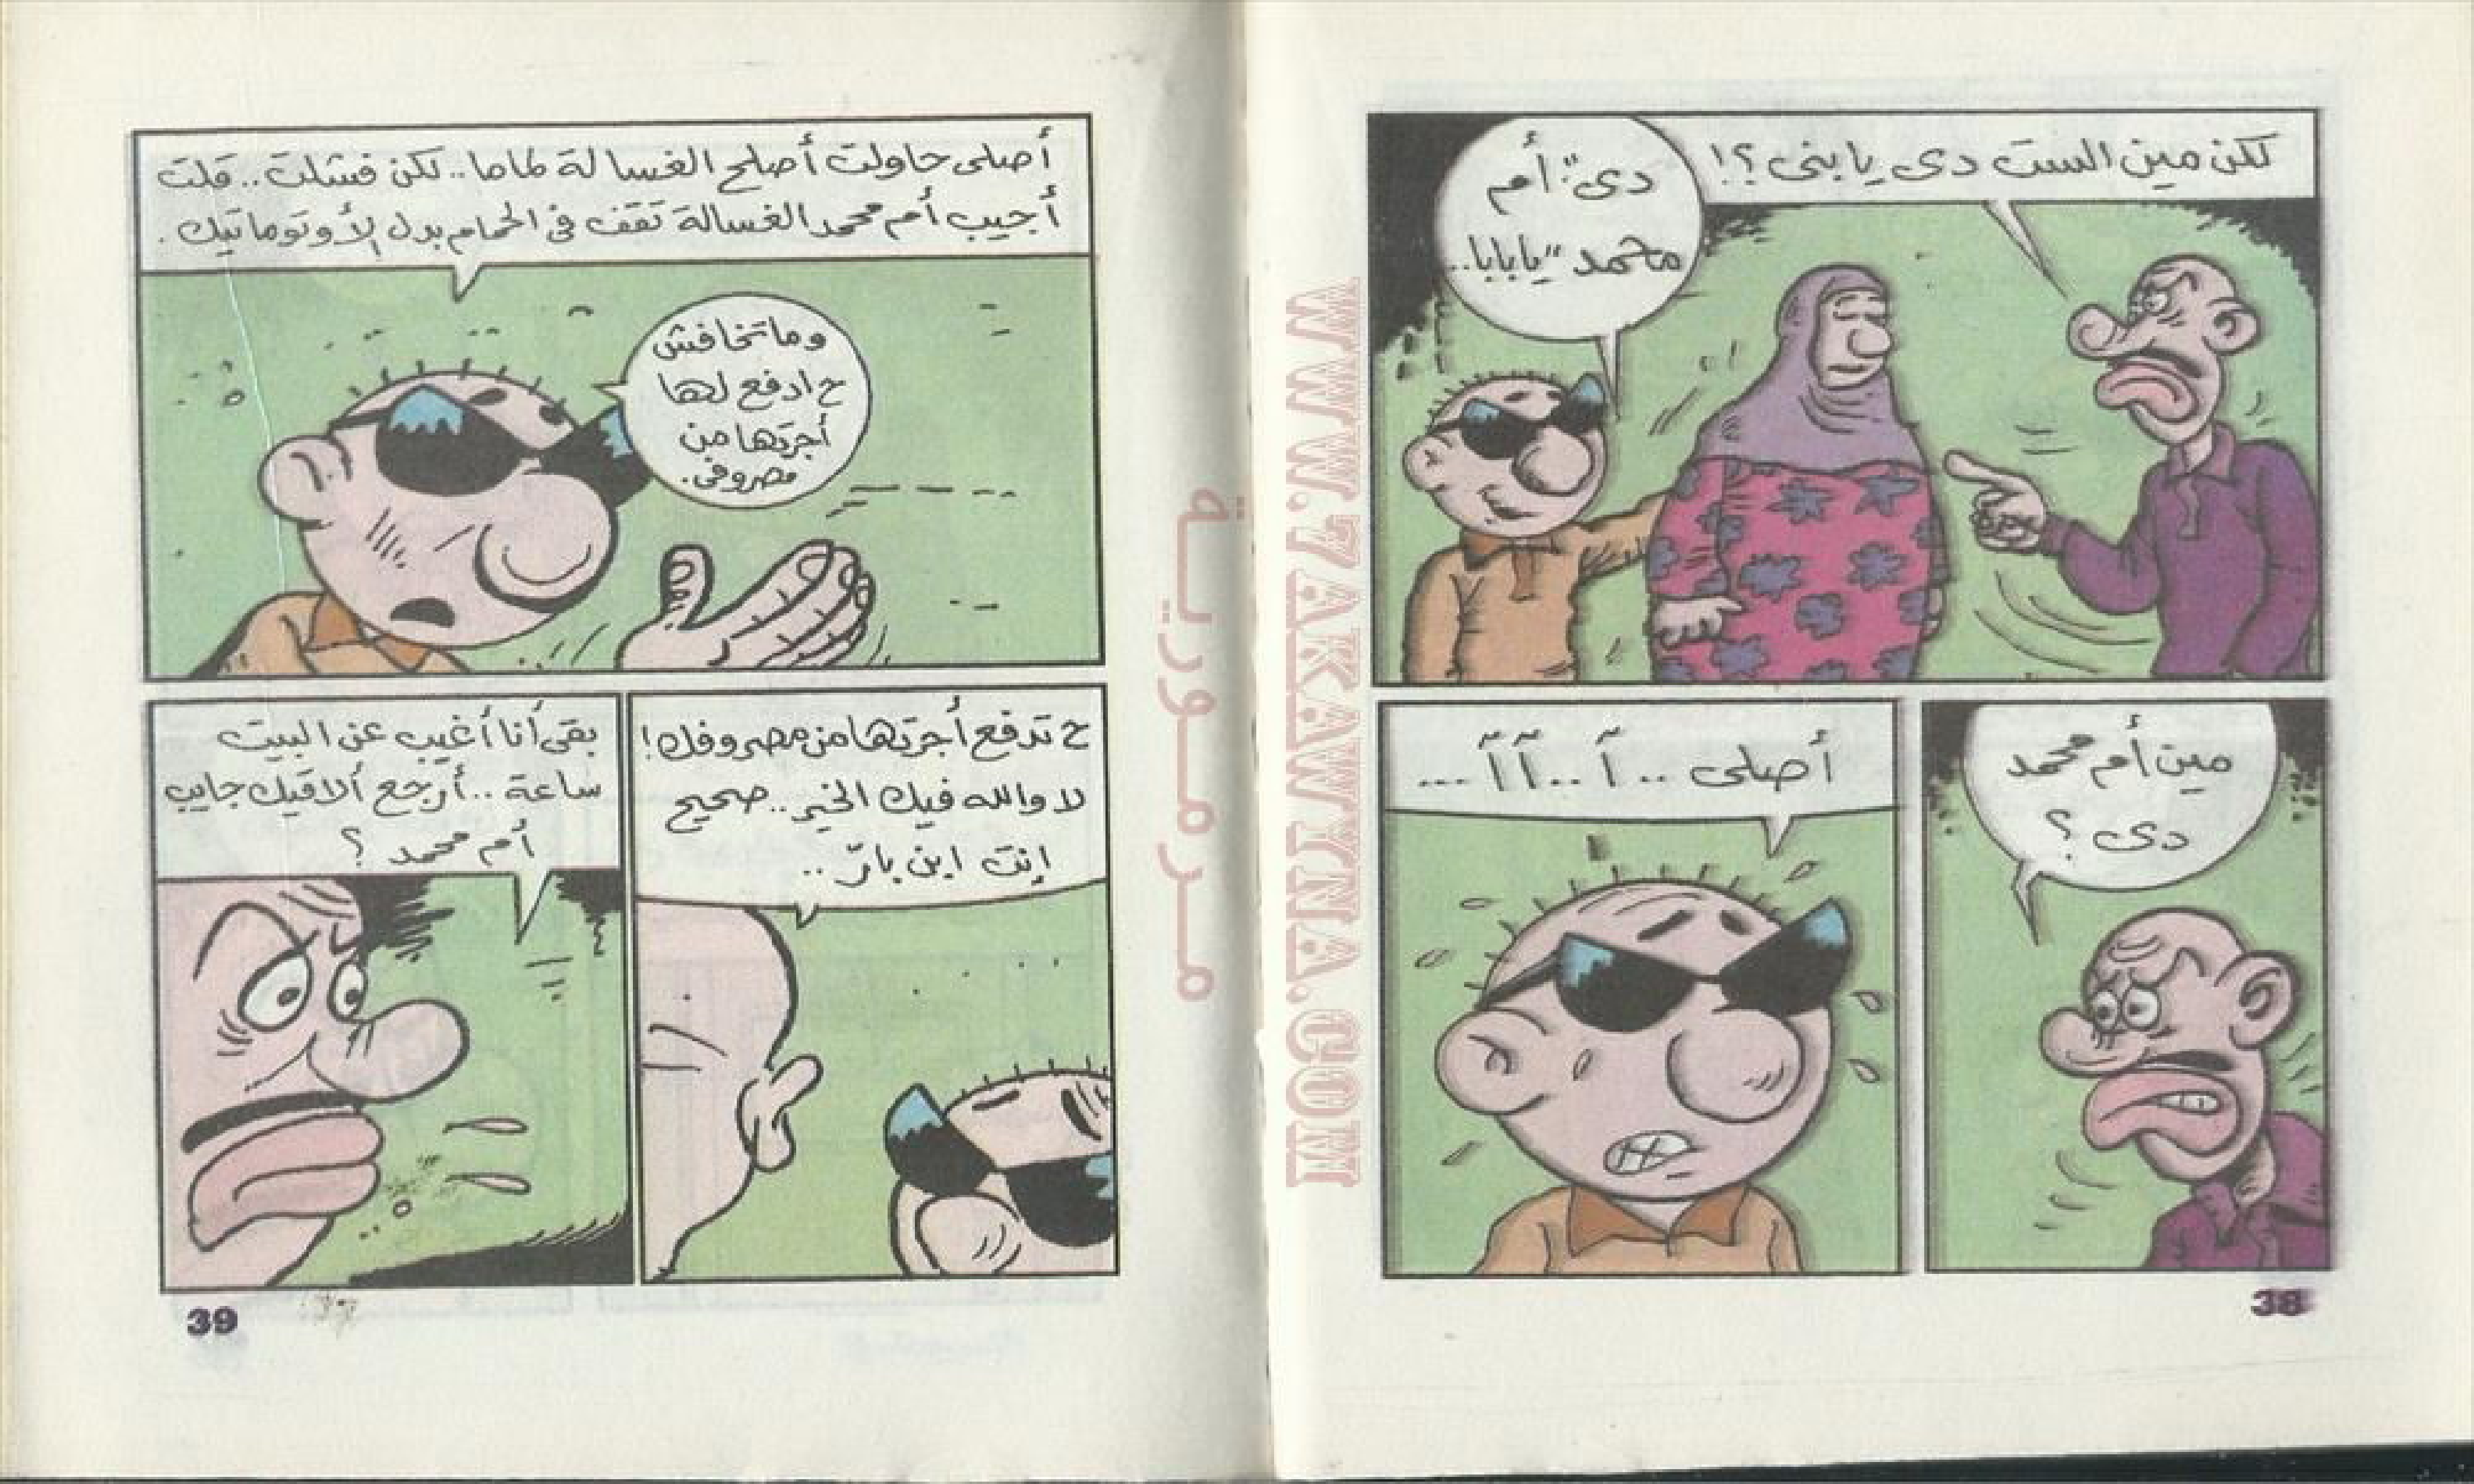 لكن مين الست دى يا بنى؟!
دى "أم
محمد" يا بابا..
مين أم محمد
دى؟
أصلى .. آ .. آآ ...
38
أصلى حاولت أصلح الغسالة لماما.. لكن فشلت.. قلت
أجيب أم محمد الغسالة تقف فى الحمام بدل الأوتوماتيك.
وماتخافش
ح ادفع لها
أجرتها من
مصروفى.
ح تدفع أجرتها من مصروفك!
لا والله فيك الخير.. صحيح
إنت ابن بارّ..
بقى أنا أغيب عن البيت
ساعة.. أرجع ألاقيك جايب
أم محمد؟
39
مرمورية
WWW.7AKAWYNA.COM